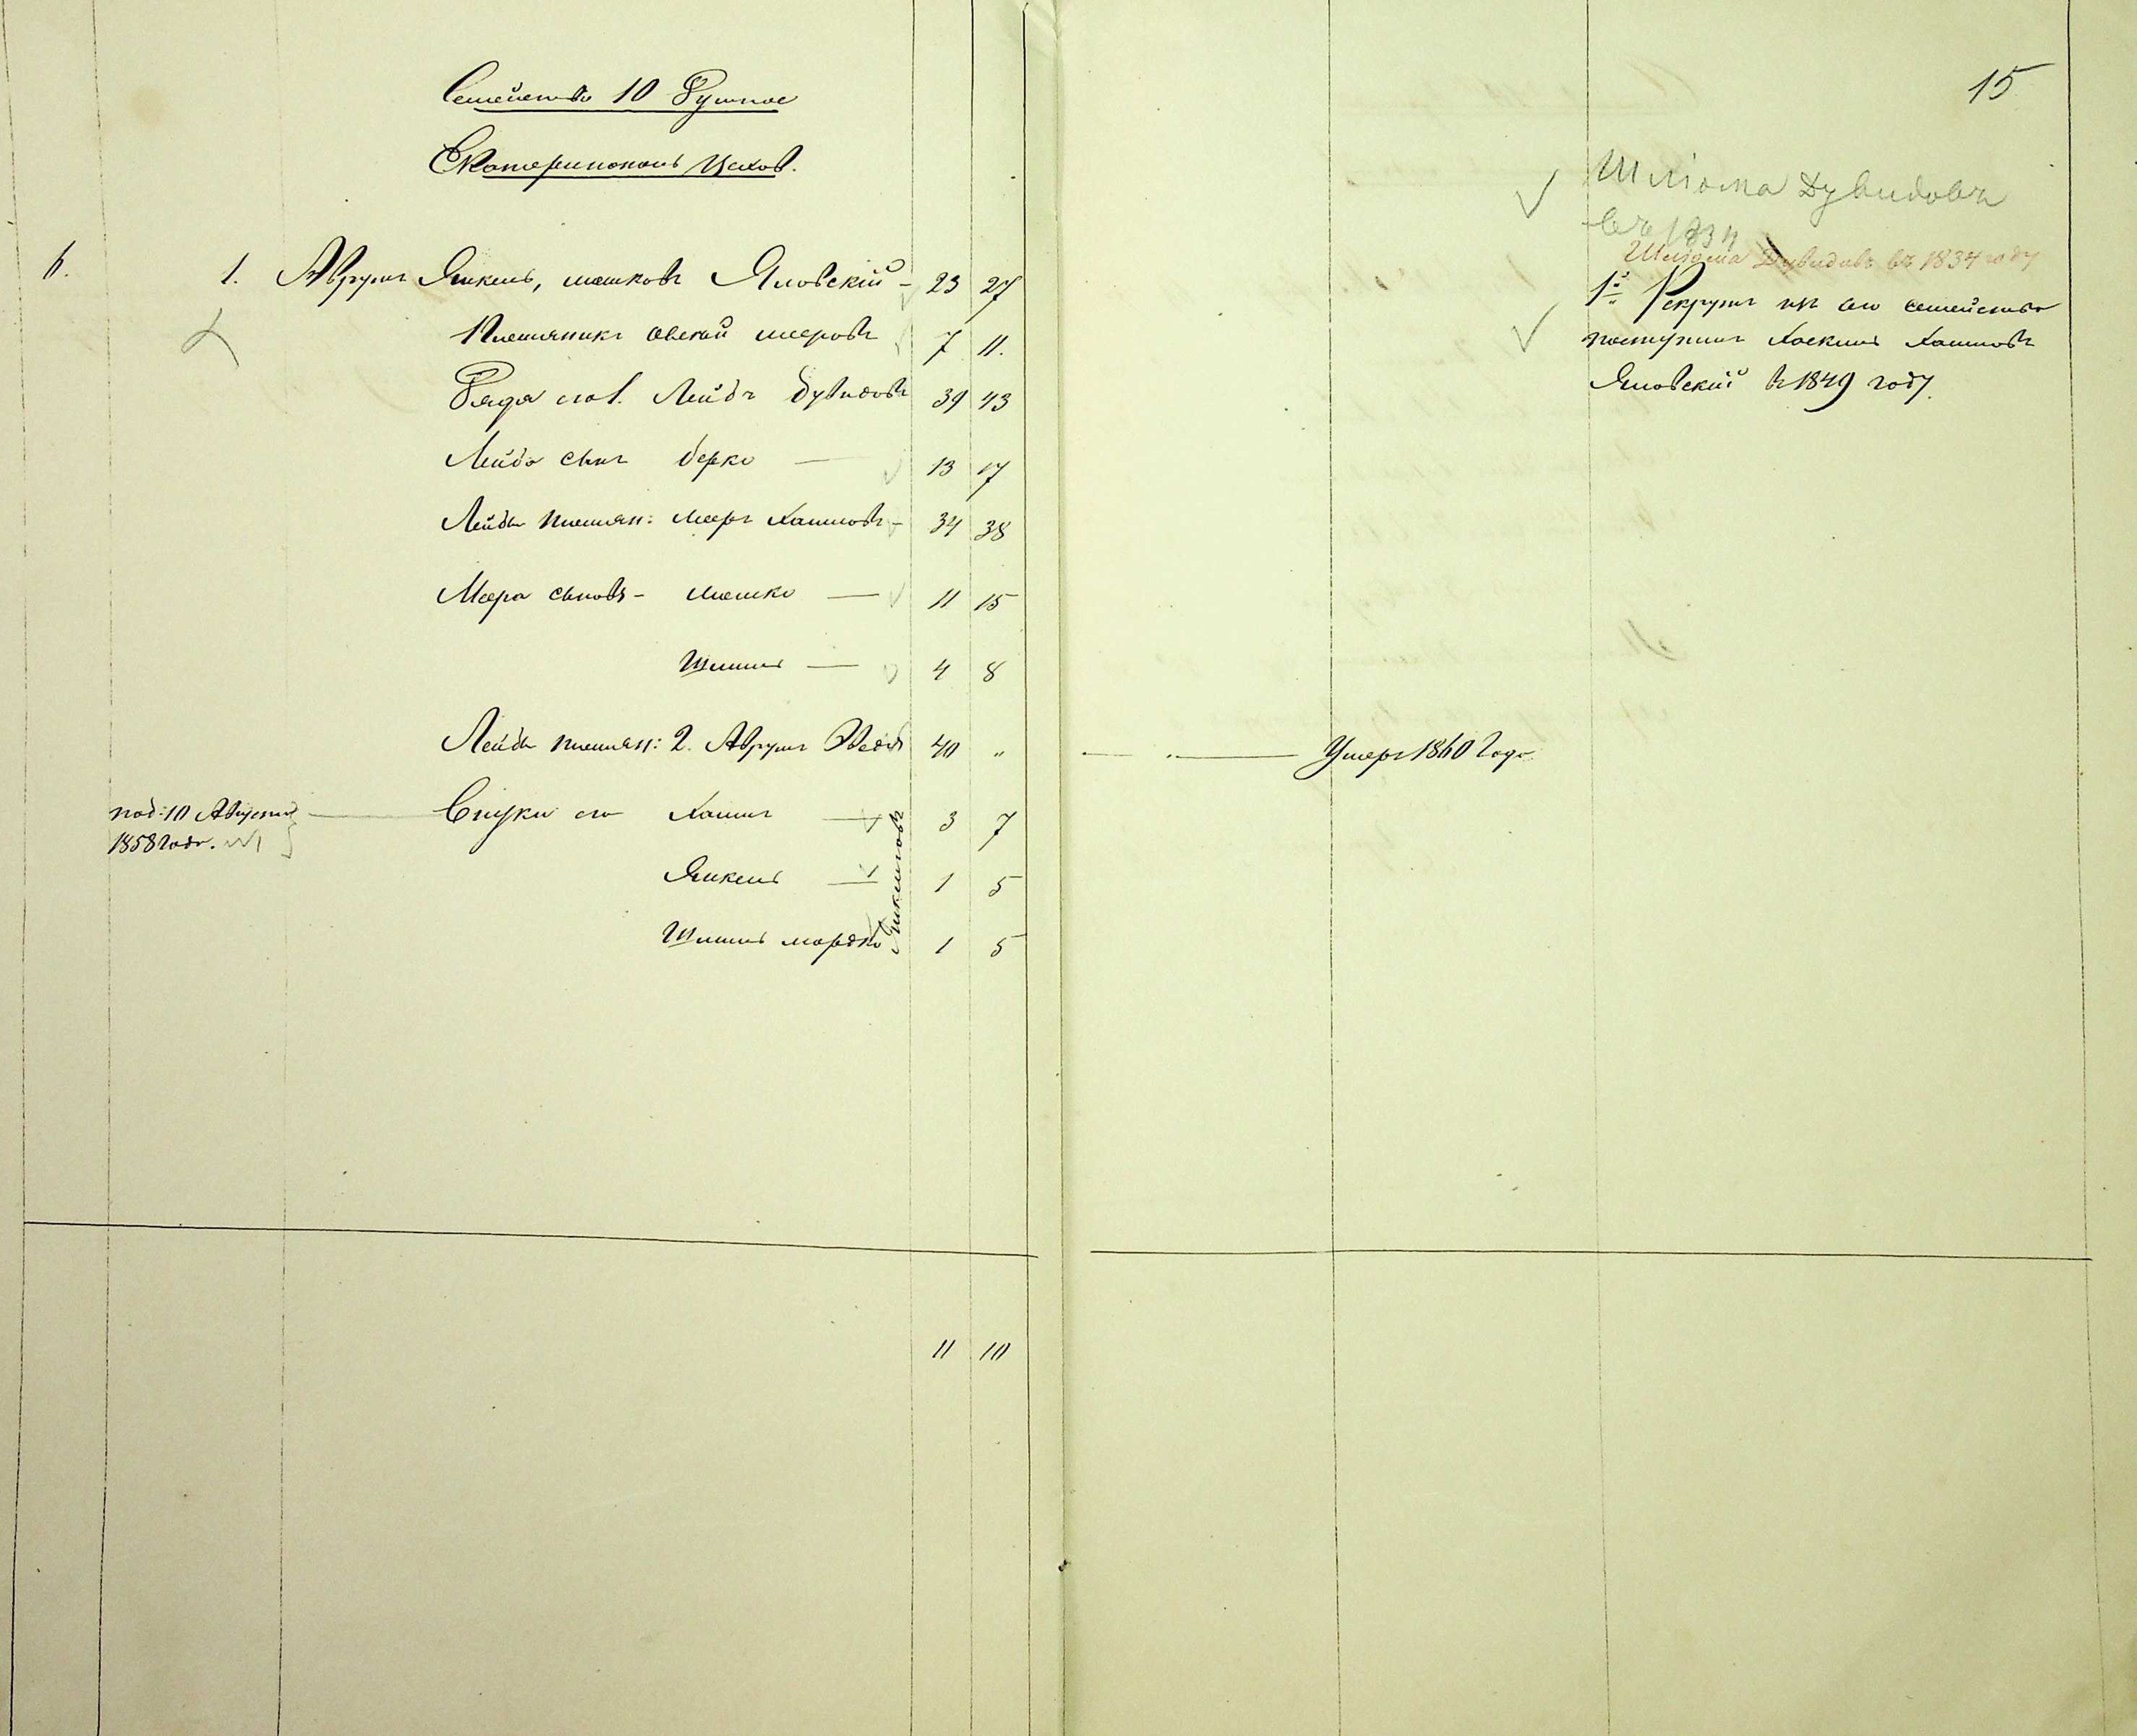 Семейство 10 Душное
Екатеринополь Цехов.
6.
1. Аврумъ Янкель, мошковъ Яловскій - 23 27
Племяникъ овсей мееровъ 7 11.
Дядя его 1. Лейбъ дувидовъ 39 43
Лейбы сынъ берко — 13 17
Лейбы племян: мееръ хаимовъ - 34 38
Меера сыновя - мошко — 11 15
Шмиль — 4 8
Лейбы племян: 2. Аврумъ 40 "
под: 10 Августа
1858 года.
Внуки его хаимъ — 3 7
Янкель — 1 5
Шмиль мордко 1 5
11 10
15
Шлiома Дувидовъ
въ 1834
Шліома Дувидовъ въ 1834 году
1й Рекрутъ изъ сего семейства
поступилъ хаскель хаимовъ
Яловскій въ 1849 году.
— " — Умеръ 1860 года